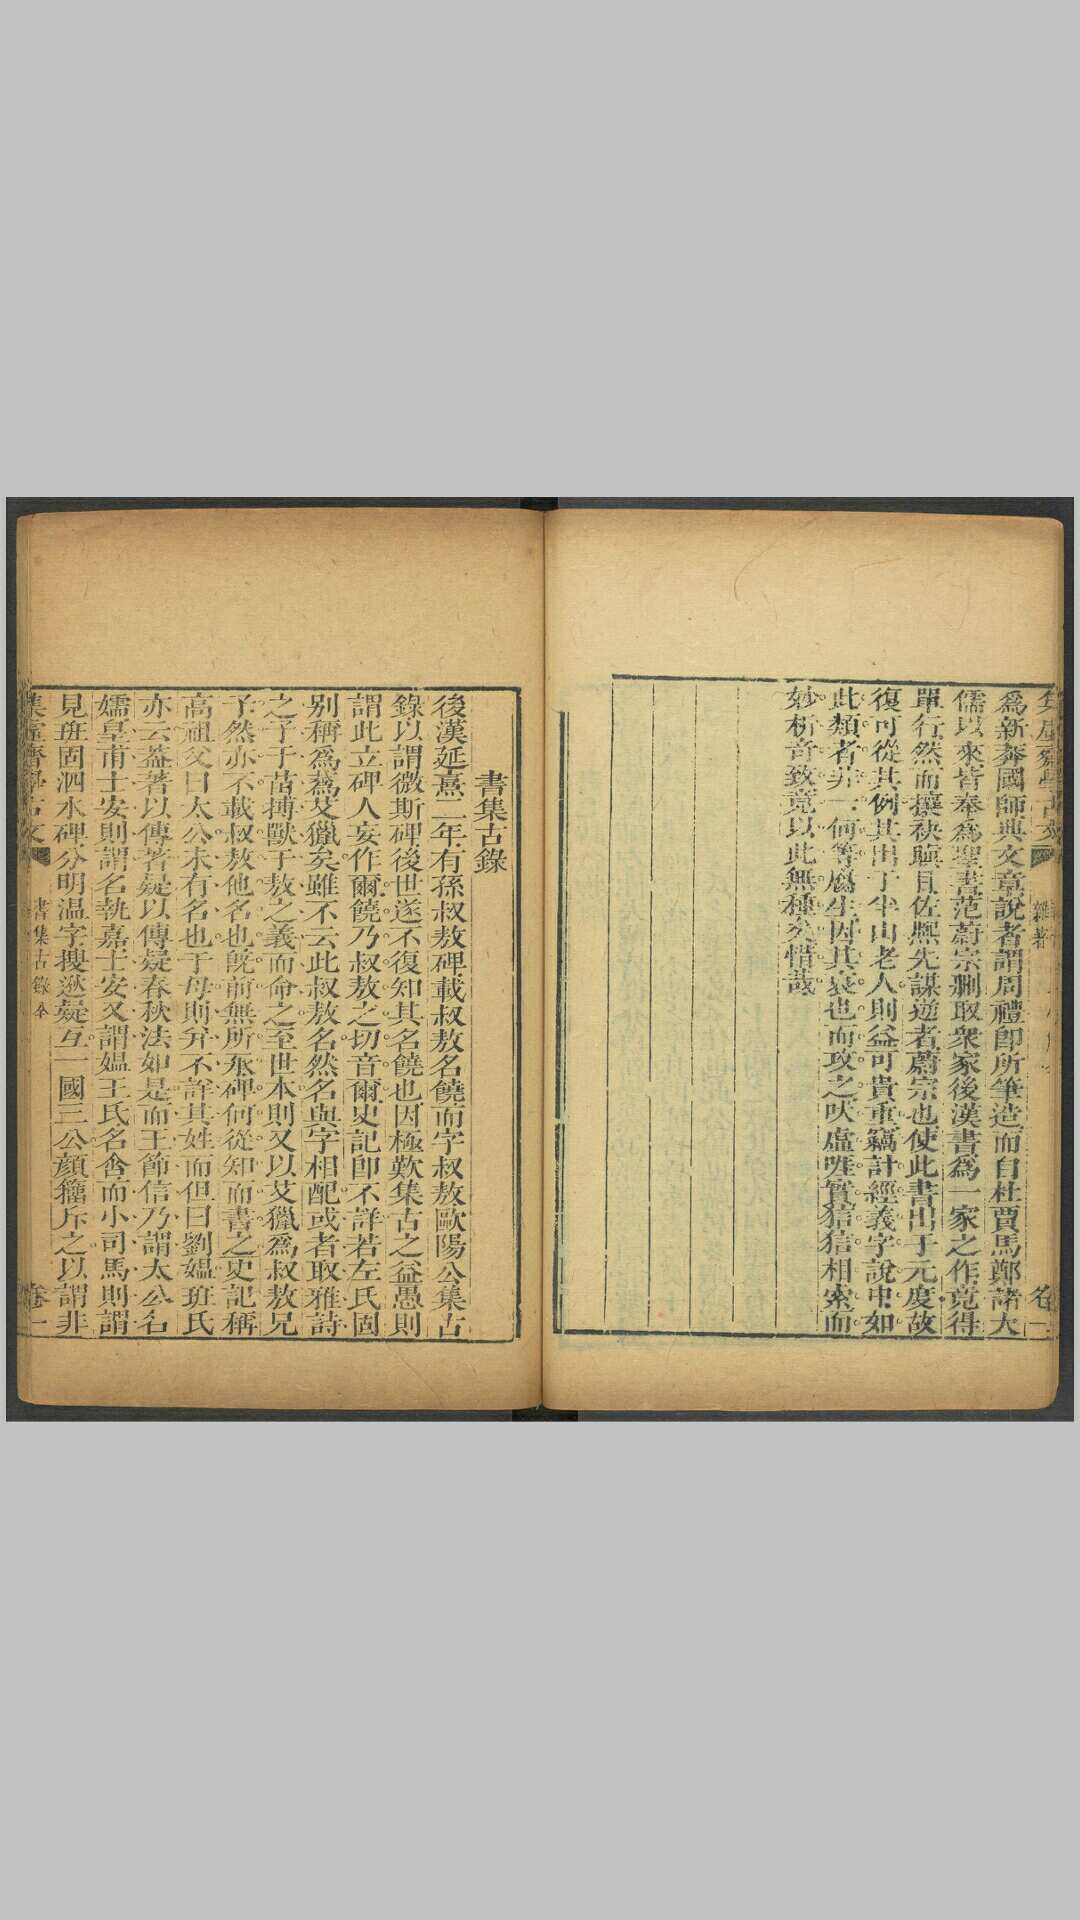 爲新莽國師典文章說者謂周禮卽所筆造而自杜賈馬鄭諸大
儒以來皆奉爲聖書范蔚宗刪取衆家後漢書爲一家之作竟得
單行然而攘袂瞋目佐熙先謀逆者蔚宗也使此書出于元度故
復可從其例其出于半山老人則益可貴重竊計經義字說中如
此類者非一何等腐生因其衰也而攻之吠虛嗥實狺狺相索而
妙析音致竟以此無種矣惜哉
雜著
書集古錄
後漢延熹二年有孫叔敖碑載叔敖名饒而字叔敖歐陽公集古
錄以謂微斯碑後世遂不復知其名饒也因極歎集古之益愚則
謂此立碑人妄作爾饒乃叔敖之切音爾史記卽不詳若左氏固
别稱爲蒍艾獵矣雖不云此叔敖名然名與字相配或者取雅詩
之子于苗搏獸于敖之義而命之至世本則又以艾獵爲叔敖兄
子然亦不載叔敖他名也旣前無所承碑何從知而書之史記稱
高祖父曰太公未有名也于母則幷不詳其姓而但曰劉媼班氏
亦云蓋著以傳著疑以傳疑春秋法如是而王節信乃謂太公名
㷍皇甫士安則謂名執嘉士安又謂媼王氏名含而小司馬則謂
見班固泗水碑分明温字搜逖疑互一國三公顏籀斥之以謂非
集虛齋學古文
書集古錄
卷一